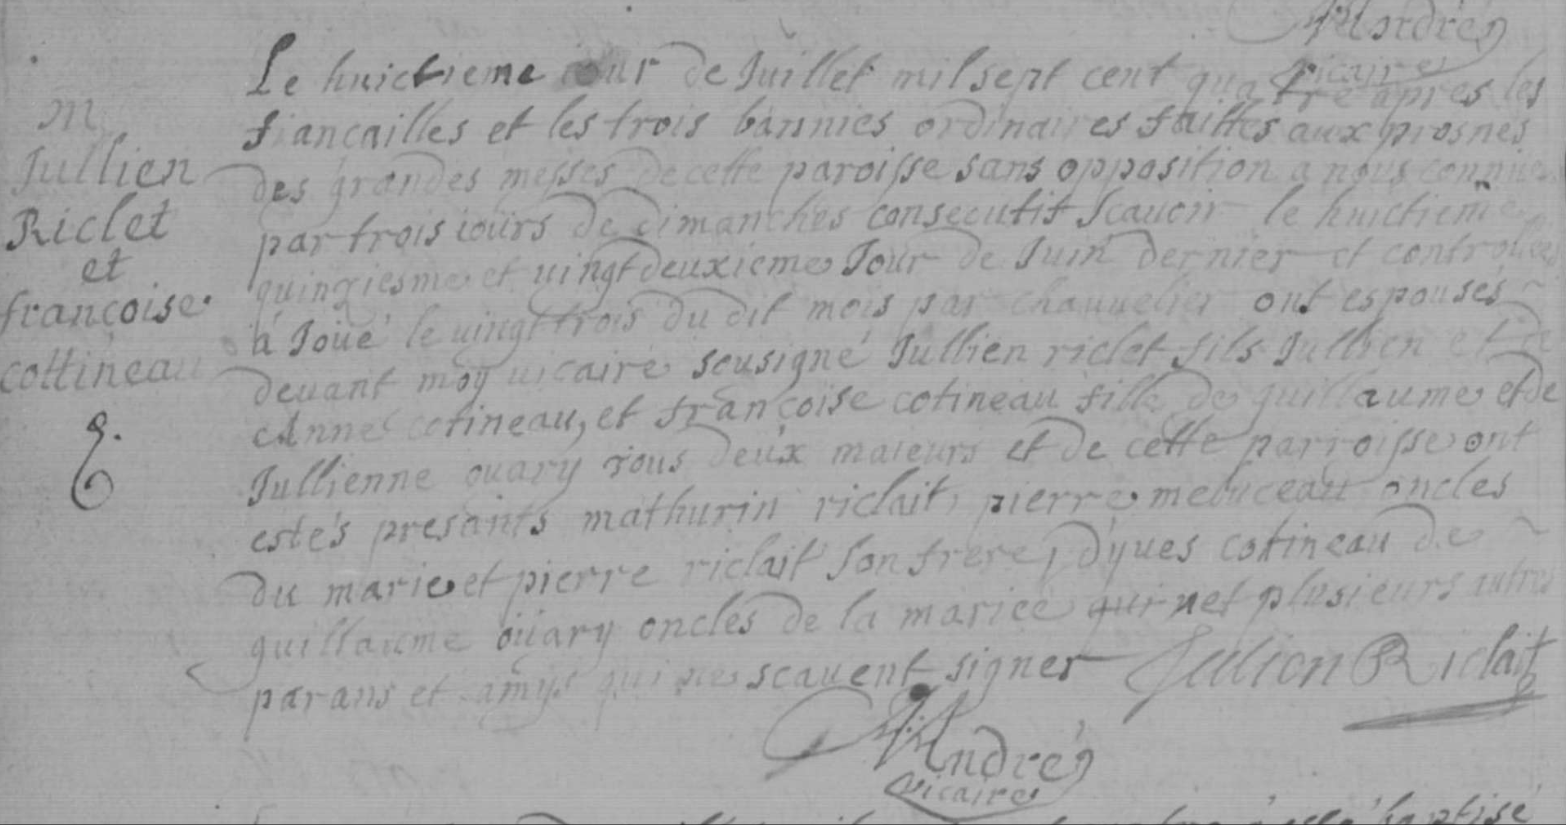 Andre
vicaire
Le huictieme iour de Juillet mil sept cent quatre apres les
fiancailles et les trois bannies ordinaires faittes aux prosnes
des grandes messes de cette paroisse sans opposition a nous connue
par trois iours de dimanches consecutifs scauoir le huictieme
quinziesme et uingt deuxieme Jour de Juin dernier et controllees
a Joüé le uingt trois du dit mois par chauuelier ont espousés
deuant moy uicaire sousigné Jullien riclet fils Jullien et de
Anne cotineau, et françoise cotineau fille de guillaume et de
Jullienne ouary tous deux maieurs et de cette parroisse ont
estés presants mathurin riclait, pierre oncles
du marie et pierre riclait son frere, dyues cotineau de
guillaume oüary oncles de la mariee et plusieurs autres
parans et amys qui ne scauent signer Julien Riclait
Andre
vicaire
m
Jullien
Riclet
et
françoise
cottineau
baptisé